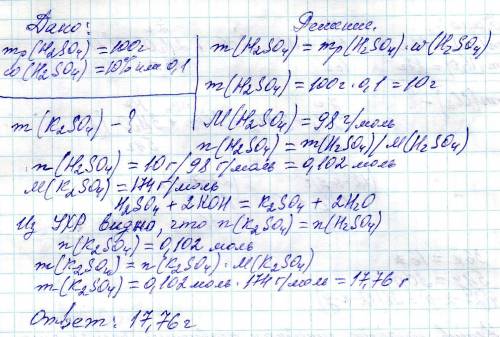 Дано:
mр(H₂SO₄) = 100г
ω(H₂SO₄) = 10% или 0,1
m(K₂SO₄) - ?
Решение.
m(H₂SO₄) = mр(H₂SO₄)·ω(H₂SO₄)
m(H₂SO₄) = 100г·0,1 = 10г
M(H₂SO₄) = 98 г/моль
n(H₂SO₄) = m(H₂SO₄)/M(H₂SO₄)
n(H₂SO₄) = 10г/98 г/моль = 0,102 моль
M(K₂SO₄) = 174 г/моль
H₂SO₄ + 2KOH = K₂SO₄ + 2H₂O
Из УХР видно, что n(K₂SO₄) = n(H₂SO₄)
n(K₂SO₄) = 0,102 моль
m(K₂SO₄) = n(K₂SO₄)·M(K₂SO₄)
m(K₂SO₄) = 0,102 моль·174 г/моль = 17,76 г
Ответ: 17,76 г